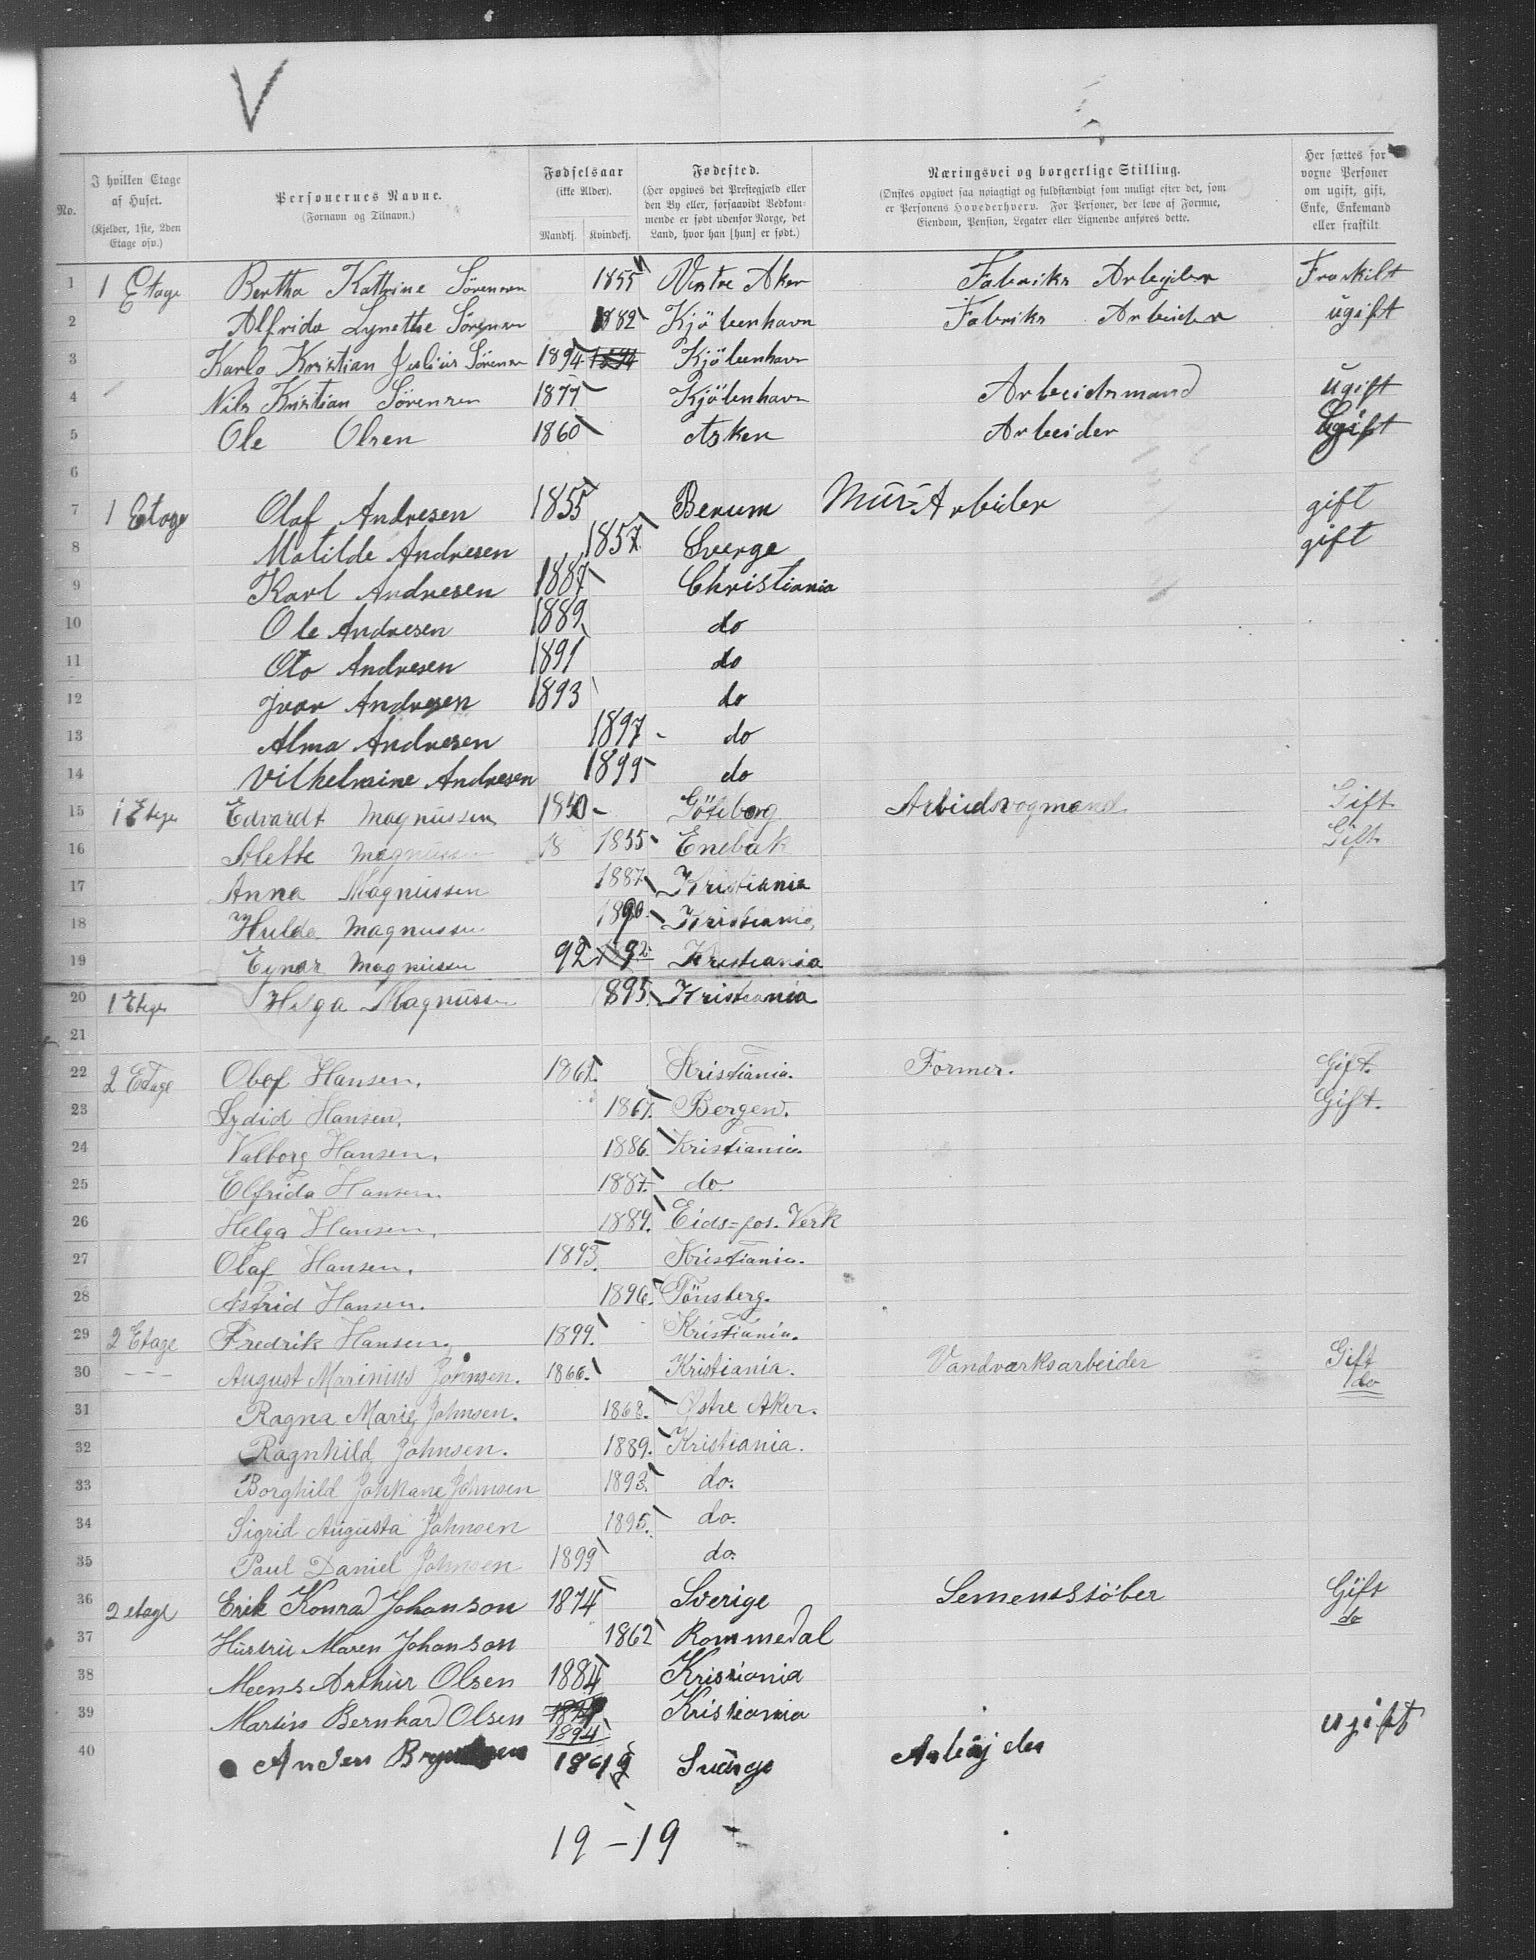 V
No.
I hvilken Etage af Huset. (Kjelder, 1ste, 2den Etage osv.)
Personernes Navne. (Fornavn og Tilnavn.)
Fødselsaar (ikke Alder). Mandkj. Kvindekj.
Fødested. (Her opgives det Prestegjæld eller den By eller, forsaavidt Vedkommende er født udenfor Norge, det Land, hvor han [hun] er født.)
Næringsvei og borgerlige Stilling. (Ønskes opgivet saa nøiagtigt og fuldstændigt som muligt efter det, som er Personens Hovederhverv. For Personer, der leve af Formue, Eiendom, Pension, Legater eller Lignende anføres dette.
Her sættes for voxne Personer om ugift, gift, Enke, Enkemand eller fraskilt
1 1 Etage Bertha Kathrine Sörensen 1855 Vestre Aker Fabriks Arbejder Fraskilt
2 Alfrida Lynethe Sörensen 1882 Kjöbenhavn Fabriks Arbeider ugift
3 Karlo Kristian Julius Sörensen 1894 1894 Kjöbenhavn
4 Nils Kristian Sörensen 1877 Kjöbenhavn Arbeidsmand ugift
5 Ole Olsen 1860 Asken Arbeider Ugift
6
7 1 Etage Olaf Andresen 1855 Berum Mur-Arbeider gift
8 Matilde Andresen 1857 Sverge gift
9 Karl Andresen 1887 Christiania
10 Ole Andresen 1889 do
11 Oto Andresen 1891 do
12 Ivar Andresen 1893 do
13 Alma Andresen 1897 do
14 Vilhelmine Andresen 1899 do
15 1 Etage Edvardt Magnussen 1850 Göteborg Arbiedsvogmand Gift
16 Alette Magnussen 18 1855 Enebak Gift
17 Anna Magnussen 1887 Kristiania
18 Hulda Magnussen 1890 Kristiania
19 Eynar Magnussen 92 Kristiania
20 1 Etage Helga Magnussen 1895 Kristiania
21
22 2 Etage Olaf Hansen. 1861. Kristiania. Former. Gift.
23 Lydid Hansen. 1867. Bergen. Gift.
24 Valborg Hansen. 1886. Kristiania.
25 Elfrida Hansen. 1887. do.
26 Helga Hansen. 1889. Eids-fos. Verk
27 Olaf Hansen. 1893. Kristiania.
28 Astrid Hansen. 1896. Tönsberg.
29 2 Etage Fredrik Hansen. 1899. Kristiania.
30 - - - August Marinius Johnsen. 1866. Kristiania. Vandværksarbeider Gift
do
31 Ragna Marie Johnsen. 1868. Østre Aker.
32 Ragnhild Johnsen. 1889. Kristiania.
33 Borghild Johnsen 1893. do.
34 Sigrid Augusta Johnsen 1895. do.
35 Paul Daniel Johnsen 1899 do.
36 2 etage Erik Konrad Johanson 1874 Sverige Sementstöber Gift
do
37 Hustru Maren Johanson 1862 Rommedal
38 Mens Arthur Olsen 1884 Kristiania
39 Martin Bernhard Olsen 1894 Kristiania
40 Andeu 1861 Sverge Arbejder ugift
19 - 19